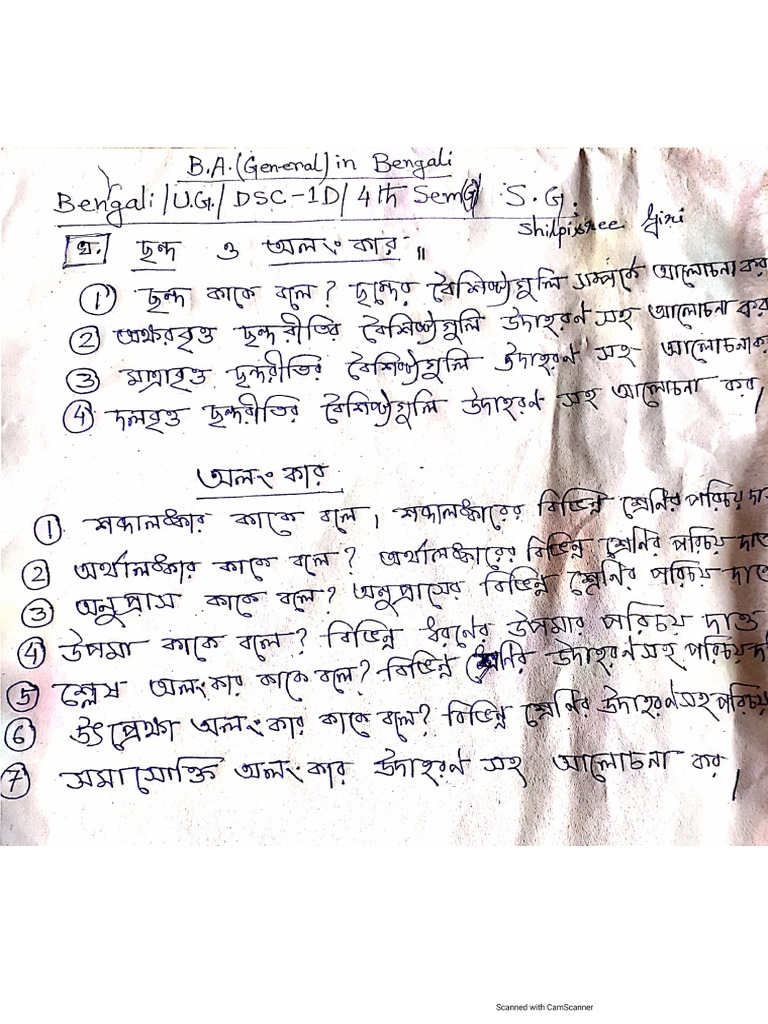 B.A.(General) in Bengali
Bengali/U.G./DSC-1D/4th Sem(G) S.G.
Shilpisree Giri
খ. ছন্দ ও অলংকার ॥
① ছন্দ কাকে বলে? ছন্দের বৈশিষ্ট্যগুলি সম্পর্কে আলোচনা কর
② অক্ষরবৃত্ত ছন্দরীতির বৈশিষ্ট্যগুলি উদাহরণ সহ আলোচনা কর
③ মাত্রাবৃত্ত ছন্দরীতির বৈশিষ্ট্যগুলি উদাহরণ সহ আলোচনা ক
④ দলবৃত্ত ছন্দরীতির বৈশিষ্ট্যগুলি উদাহরণ সহ আলোচনা কর।
অলংকার
① শব্দালঙ্কার কাকে বলে। শব্দালঙ্কারের বিভিন্ন শ্রেণির পরিচয় দা
② অর্থালঙ্কার কাকে বলে? অর্থালঙ্কারের বিভিন্ন শ্রেণির পরিচয় দাও
③ অনুপ্রাস কাকে বলে? অনুপ্রাসের বিভিন্ন শ্রেণির পরিচয় দাও
④ উপমা কাকে বলে? বিভিন্ন ধরণের উপমার পরিচয় দাও
⑤ শ্লেষ অলংকার কাকে বলে? বিভিন্ন শ্রেণির উদাহরণ সহ পরিচয় দা
⑥ উৎপ্রেক্ষা অলংকার কাকে বলে? বিভিন্ন শ্রেণির উদাহরণ সহ পরিচয়
⑦ সমাসোক্তি অলংকার উদাহরণ সহ আলোচনা কর।
Scanned with CamScanner